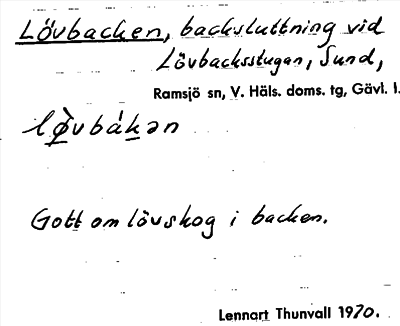 Lövbacken, backsluttning vid
Lövbacksstugan, Sund,
Ramsjö sn, V. Häls. doms. tg, Gävl. l.
lø̀vbákən
Gott om lövskog i backen.
Lennart Thunvall 1970.